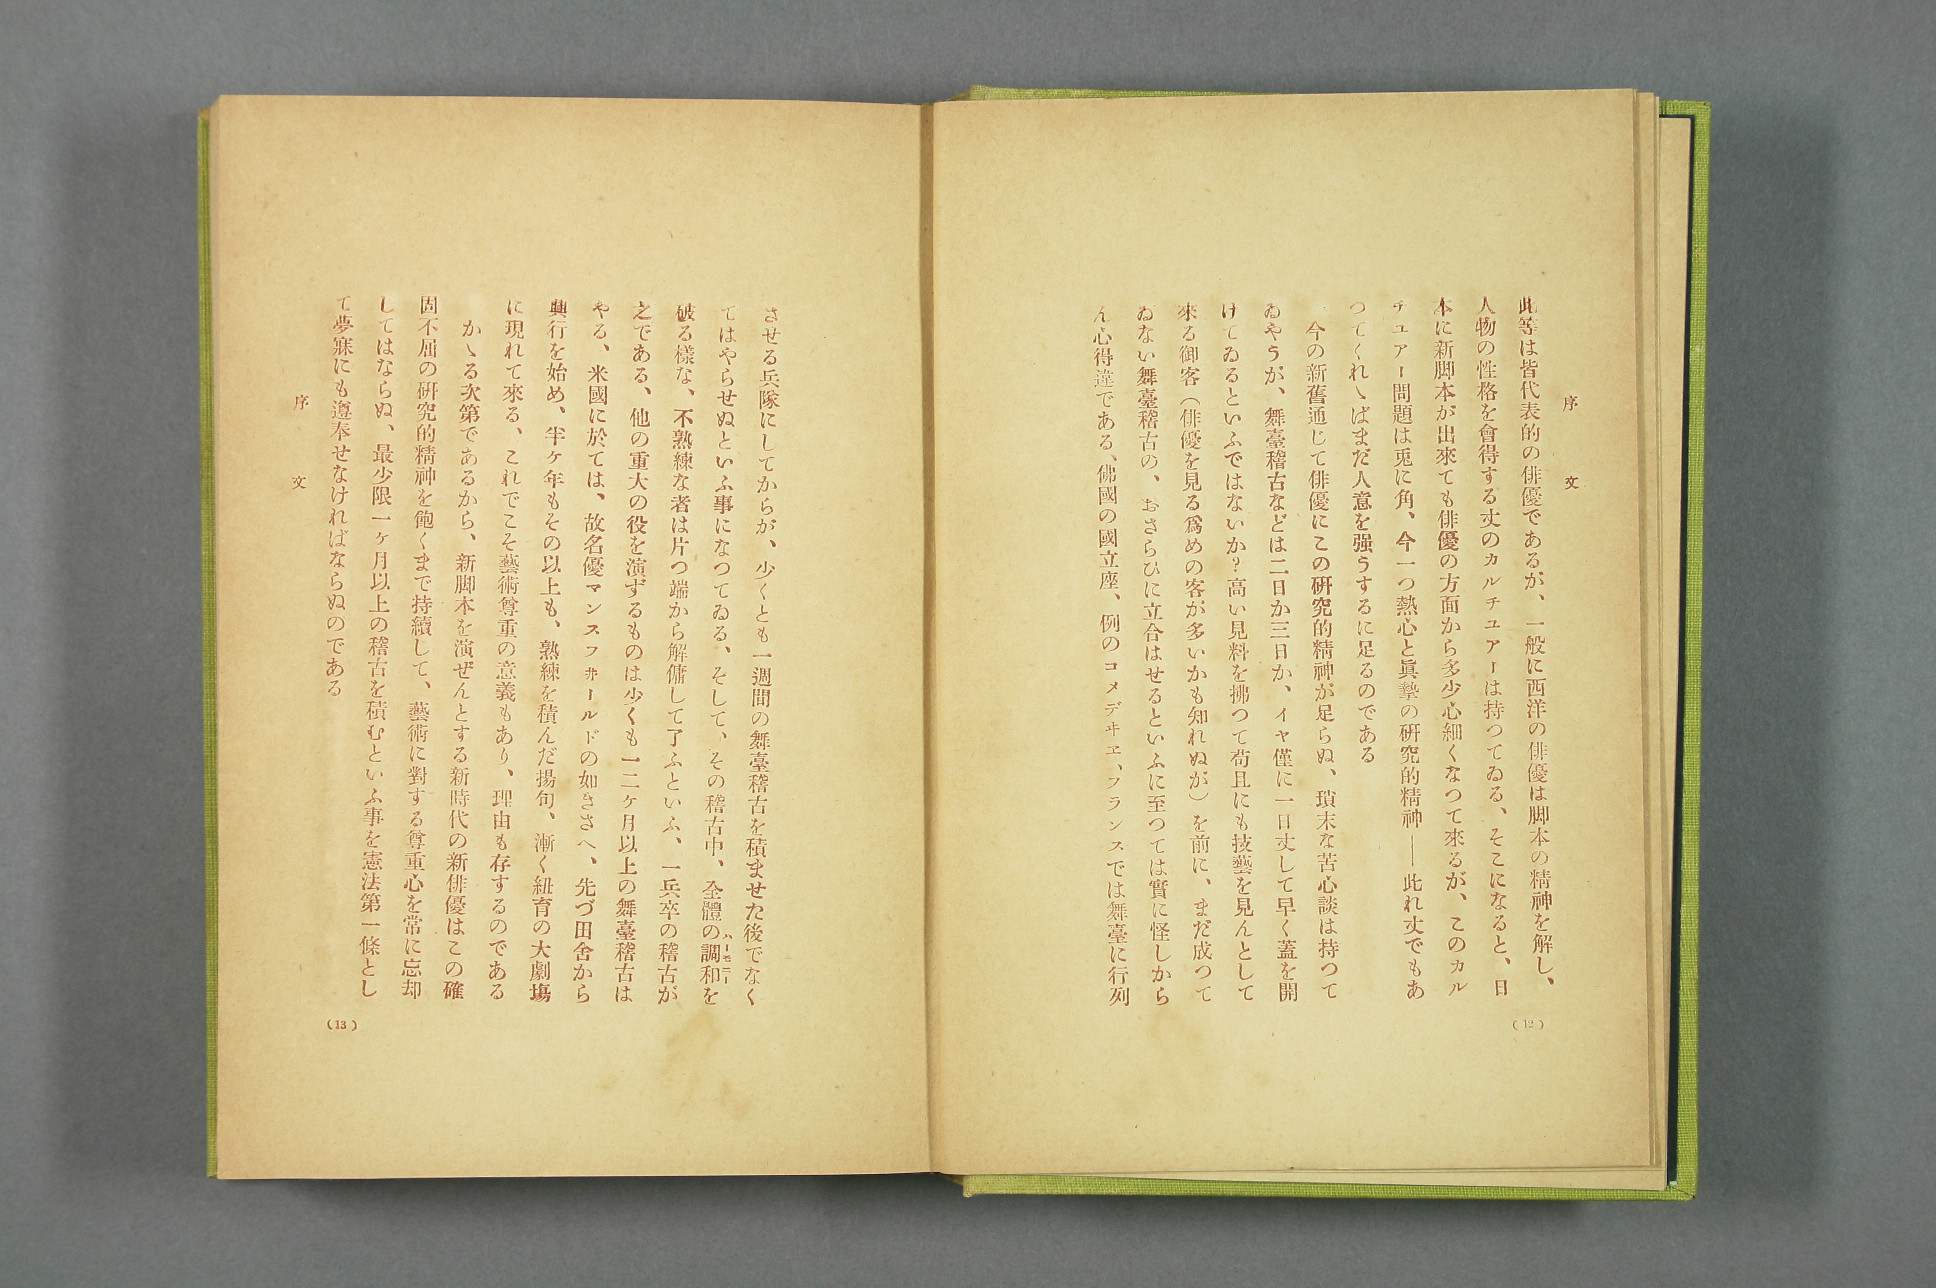 序文
此等は皆代表的の俳優であるが、一般に西洋の俳優は脚本の精神を解し、
人物の性格を會得する丈のカルチユアーは持つてゐる、そこになると、日
本に新脚本が出來ても俳優の方面から多少心細くなつて來るが、このカル
チユアー問題は兎に角、今一つ熱心と眞摯の硏究的精神――此れ丈でもあ
つてくれゝばまだ人意を强うするに足るのである
今の新舊通じて俳優にこの硏究的精神が足らぬ、瑣末な苦心談は持つて
ゐやうが、舞臺稽古などは二日か三日か、イヤ僅に一日丈して早く蓋を開
けてゐるといふではないか?高い見料を拂つて苟且にも技藝を見んとして
來る御客(俳優を見る爲めの客が多いかも知れぬが)を前に、まだ成つて
ゐない舞臺稽古の、おさらひに立合はせるといふに至つては實に怪しから
ん心得違である、佛國の國立座、例のコメデヰヱ、フランスでは舞臺に行列
(12)
させる兵隊にしてからが、少くとも一週間の舞臺稽古を積ませた後でなく
てはやらせぬといふ事になつてゐる、そして、その稽古中、全體の調和を
ハーモニー
破る樣な、不熟練な者は片つ端から解傭して了ふといふ、一兵卒の稽古が
之である、他の重大の役を演ずるものは少くも一二ヶ月以上の舞臺稽古は
やる、米國に於ては、故名優マンスフ井ールドの如きさへ、先づ田舍から
興行を始め、半ヶ年もその以上も、熟練を積んだ揚句、漸く紐育の大劇塲
に現れて來る、これでこそ藝術尊重の意義もあり、理由も存するのである
かゝる次第であるから、新脚本を演ぜんとする新時代の新俳優はこの確
固不屈の硏究的精神を飽くまで持續して、藝術に對する尊重心を常に忘却
してはならぬ、最少限一ヶ月以上の稽古を積むといふ事を憲法第一條とし
て夢寐にも遵奉せなければならぬのである
序文
(13)